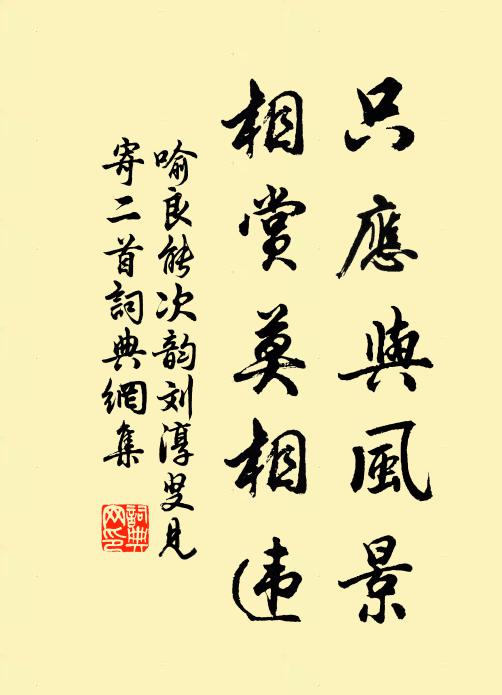 只應與風景
相賞莫相违
喻良能次韵刘淳叟见
寄二首詞典網集
詞典
网印